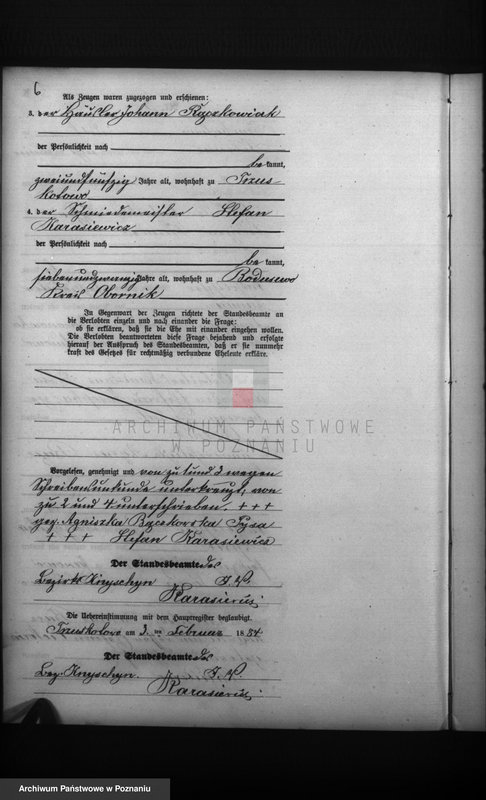 6
Als Zeugen waren zugezogen und erschienen:
3. der Häusler Johann Kaczkowiak
der Persönlichkeit nach
be kannt,
zweiundfünfzig Jahre alt, wohnhaft zu Trus-
kotowo
4. der Schmiedemeister Stefan
Karasiewicz
der Persönlichkeit nach
be kannt,
siebenundzwanzig Jahre alt, wohnhaft zu Boduszewo
Kreis Obornik
In Gegenwart der Zeugen richtete der Standesbeamte an
die Verlobten einzeln und nach einander die Frage:
ob sie erklären, daß sie die Ehe mit einander eingehen wollen.
Die Verlobten beantworteten diese Frage bejahend und erfolgte
hierauf der Ausspruch des Standesbeamten, daß er sie nunmehr
kraft des Gesetzes für rechtmäßig verbundene Eheleute erkläre.
ARCHIWUM PAŃSTWOWE
W POZNANIU
Vorgelesen, genehmigt und von zu 1 und 3 wegen
Schreibensunkunde unterkreuzt, von
zu 2 und 4 unterschrieben. + + +
gez. Agniszka
+ + + Stefan Karasiewicz
Der Standesbeamte des
Bezirks Knyschyn I. V.
Karasiewicz
Die Uebereinstimmung mit dem Hauptregister beglaubigt.
Truskotowo am 3. ten Februar 1884
Der Standesbeamte des
Bez. Knyschyn. I. V.
Karasiewicz
Archiwum Państwowe w Poznaniu